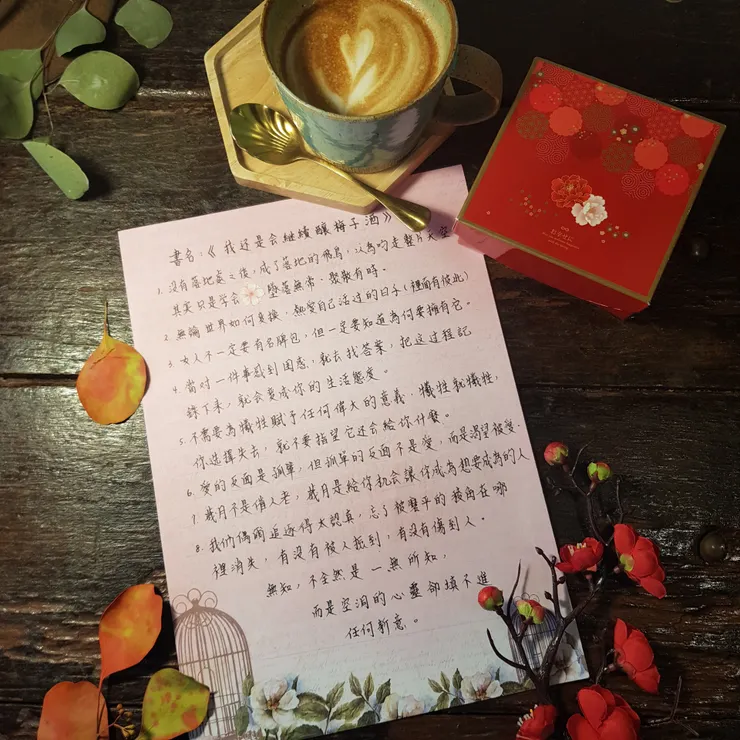 書名：《我还是会継續釀梅子酒》
1. 沒有落地處之後，成了落地的飛鳥，以為吻走整片天空
其实只是学会 墜落無常，聚散有時。
2. 無論世界如何変換，熱愛自己活过的日子（裡面有彼此）
3. 女人不一定要有名牌包，但一定要知道為何要擁有它。
4. 當对一件事感到困惑，就去找答案，把这过程記
錄下来，就会变成你的生活態度。
5. 不需要為犧牲賦予任何偉大的意義，犧牲就犧牲，
你选擇失去，就不要指望它还会給你什麼。
6. 愛的反面是孤單，但孤單的反面不是愛，而是渴望被愛。
7. 歲月不是催人老，歲月是給你机会讓你成為想要成為的人
8. 我們偶爾追逐得太認真，忘了被磨平的稜角在哪
裡消失，有沒有被人拾到，有沒有傷到人。
無知，不全然是一無所知，
而是空洞的心靈卻填不進
任何新意。